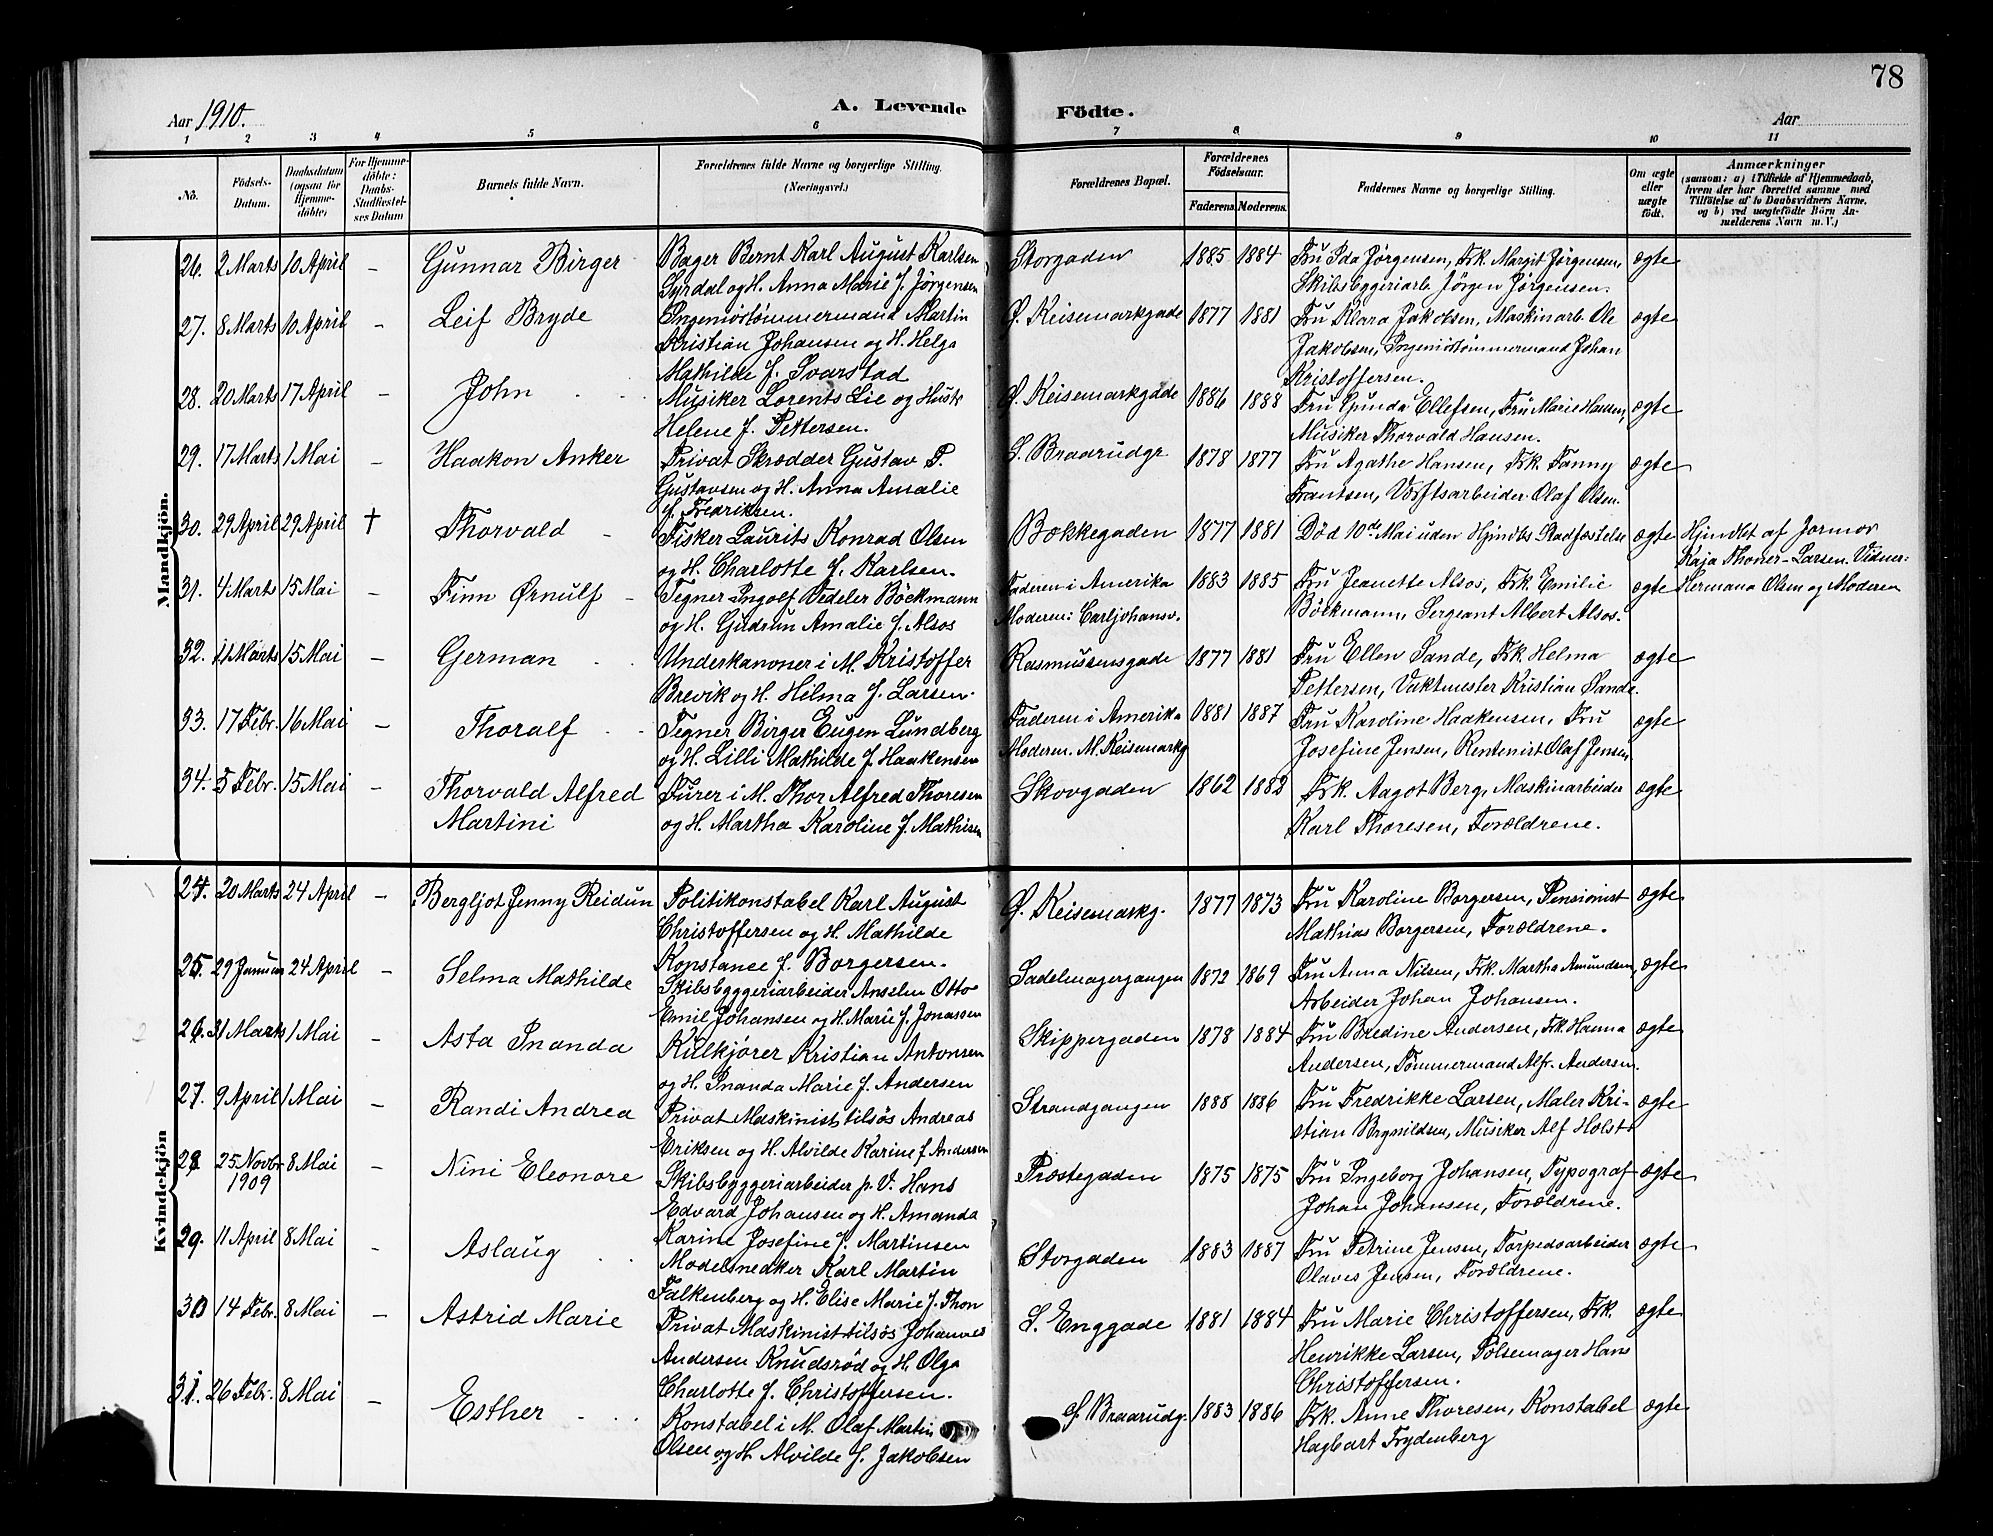 78
Aar 1910.
A. Levende Födte.
Aar
1 2 3 4 5 6 7 8 9 10 11
No. Födsels-Datum. Daabsdatum (ogsaa for Hjemmedöbte) For Hjemmedöbte: Daabs-Stadfæstelses Datum Barnets fulde Navn. Forældrenes fulde Navne og borgerlige Stilling. (Næringsvei.) Forældrenes Bopæl. Forældrenes Födselsaar. Faderens. Moderens. Faddernes Navne og borgerlige Stilling. Om ægte eller uægte födt. Anmærkninger (saasom: a) i Tilfælde af Hjemmedaab, hvem der har forrettet samme, med Tilföielse af to Daabsvidners Navne, og b) ved uægtefödte Börn Anmelderens Navn m. V.)
Mandkjön.
26. 2 Marts 10 April - Gunnar Birger Bager Bernt Karl August Karlsen Storgaden 1885 1884 Fru Ida Jørgensen, Frk. Margit Jørgensen, ægte
Syrdal og H. Anna Marie f. Jørgensen Skibsbyggeriarb. Jörgen Jörgensen.
27. 8 Marts 10 April - Leif Bryde Ingeniötömmermand Martin Ø. Keisemarkgade 1877 1881 Fru Klara Jakobsen, Maskinarb. Ole ægte
Kristian Johansen og H. Helga Jakobsen, Ingeniötömmermand Johan
Mathilde f. Svarstad Kristoffersen.
28. 20 Marts 17 April - John Musiker Lorents Lie og Hustr. Ø. Keisemarkgade 1886 1888 Fru Gunda Ellefsen, Fru Marie Hansen, ægte
Helene f. Pettersen. Musiker Thorvald Hansen.
29. 17 Marts 1 Mai - Haakon Anker Privat Skrædder Gustav P. S. Braarudgr 1878 1877 Fru Agathe Hansen, Frk. Fanny ægte
Gustavsen og H. Anna Amalie Frantsen, Værftsarbeider Olaf Olsen.
f. Fredriksen.
30. 29 April 29 April † Thorvald Fisker Laurits Konrad Olsen Bækkegaden 1877 1881 Död 10de Mai uden Hjmdbs Stadfæstelse ægte Hjmdbt af Jormor
og H. Charlotte f. Karlsen. Kaja Thoner-Larsen. Vidner:
31. 4 Marts 15 Mai - Finn Ørnulf Tegner Ingolf Vedeler Böckmann Faderen i Amerika 1883 1885 Fru Jeanette Alsos, Frk. Emilie ægte Hermana Olsen og Moderen
og H. Gudrun Amalie f. Alsos Moderen: Carljohansv. Böckmann, Sergeant Albert Alsos.
32. 11 Marts 15 Mai - German Underkanoner i M. Kristoffer Rasmussensgade 1877 1881 Fru Ellen Sande, Frk. Helma ægte
Brevik og H. Hilma f. Larsen. Pettersen, Vaktmester Kristian Sande.
33. 17 Febr. 16 Mai - Thoralf Tegner Birger Eugen Lundberg Faderen i Amerika 1881 1887 Fru Karoline Haakensen, Fru ægte
og H. Lilli Mathilde f. Haakensen Moderen. M. Keisemarkg Josefine Jensen, Rentenist Olaf Jensen
34. 5 Febr. 15 Mai - Thorvald Alfred Furer i M. Thor Alfred Thoresen Skovgaden 1862 1882 Frk. Aagot Berg, Maskinarbeider ægte
Martini og H. Martha Karoline f. Mathisen Karl Thoresen, Forældrene.
Kvindekjön
24. 20 Marts 24 April - Bergljot Jenny Reidun Politikonstabel Karl August Ø. Keisemarkg. 1877 1873 Fru Karoline Borgersen, Pensionist ægte
Christoffersen og H. Mathilde Mathias Borgersen, Forældrene.
Konstanse f. Borgersen.
25. 29 Januar 24 April - Selma Mathilde Skibsbyggeriarbeider Anselm Otto Sadelmagergangen 1872 1869 Fru Anna Nilsen, Frk. Martha Amundsen, ægte
Emil Johansen og H. Marie f. Jonassen Arbeider Johan Johansen.
26. 31 Marts 1 Mai - Asta Inanda Kulkjörer Kristian Antonsen Skippergaden 1878 1884 Fru Bredine Andersen, Frk. Hanna ægte
og H. Inanda Marie f. Andersen Andersen, Tömmermand Alfr. Andersen.
27. 9 April 1 Mai - Randi Andrea Privat Maskinist tilsøs Andreas Strandgangen 1888 1886 Fru Fredrikke Larsen, Maler Kri- ægte
Eriksen og H. Alvilde Karine f. Andersen stian Brynildsen, Musiker Alf Holst
28. 25 Novbr. 1909 8 Mai - Nini Eleonore Skibsbyggeriarbeider p. V. Hans Præstegaden 1875 1875 Fru Ingeborg Johansen, Typograf ægte
Edvard Johansen og H. Amanda Johan Johansen, Forældrene.
Karine Josefine f. Martinsen
29. 11 April 8 Mai - Aslaug Modelsnedker Karl Martin Storgaden 1883 1887 Fru Petrine Jensen, Torpedoarbeider ægte
Falkenberg og H. Elise Marie f. Thon Olaves Jensen, Forældrene.
30 14 Febr. 8 Mai - Astrid Marie Privat Maskinist tilsøs Johannes S. Enggade 1881 1884 Fru Marie Christoffersen, Frk. ægte
Andersen Knudsröd og H. Olga Henrikke Larsen, Pölsemager Hans
Charlotte f. Christoffersen. Christoffersen.
31. 26 Febr. 8 Mai - Esther Konstabel i M. Olaf Martin S. Braarudg. 1883 1886 Frk. Anne Thoresen, Konstabel ægte
Olsen og H. Alvilde f. Jakobsen Hagbart Frydenberg